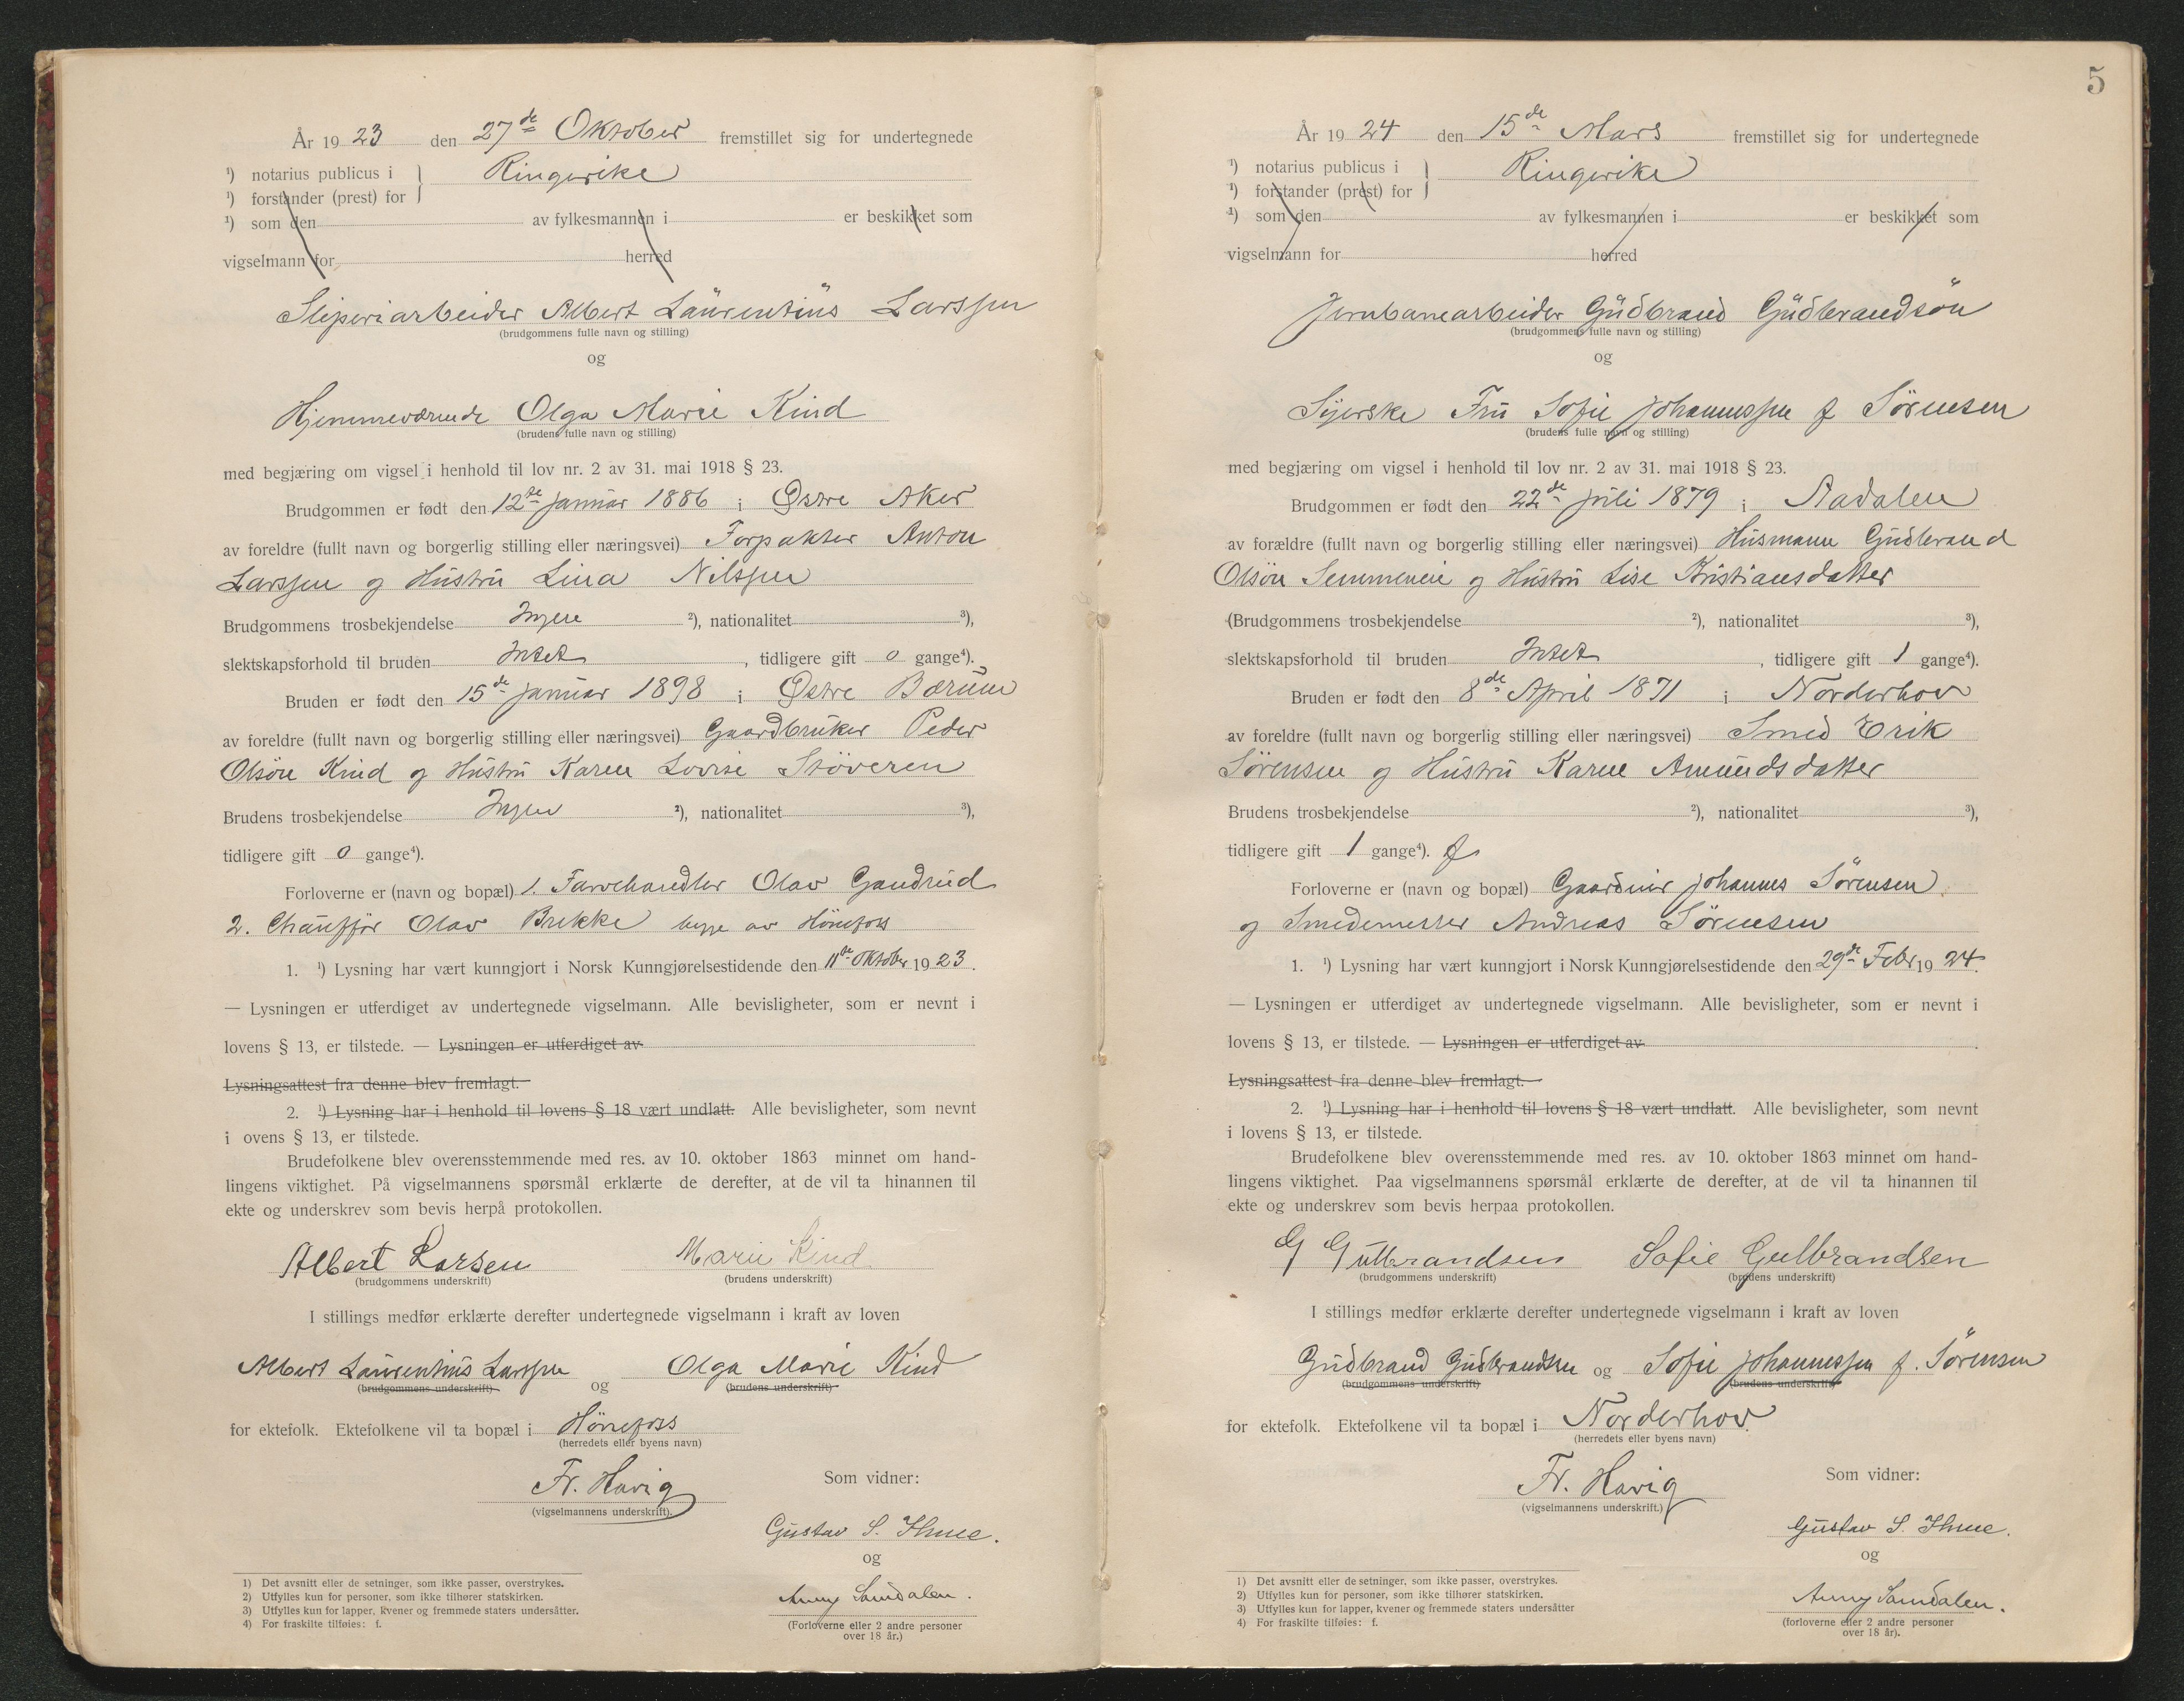 År 1923 den 27de Oktober fremstillet sig for undertegnede
¹) notarius publicus i } Ringerike
¹) forstander (prest) for
¹) som den av fylkesmannen i er beskikket som
vigselmann for herred
Sliperiarbeider Albert Laurentius Larssen
(brudgommens fulle navn og stilling)
og
Hjemmeværende Olga Marie Kind
(brudens fulle navn og stilling)
med begjæring om vigsel i henhold til lov nr. 2 av 31. mai 1918 § 23.
Brudgommen er født den 12te januar 1886 i Østre Aker
av foreldre (fullt navn og borgerlig stilling eller næringsvei) Forpakter Anton
Larssen og Hustru Lina Nilssen
Brudgommens trosbekjendelse Ingen ²), nationalitet ³),
slektskapsforhold til bruden Intet, tidligere gift 0 gange⁴).
Bruden er født den 15de januar 1898 i Østre Bærum
av foreldre (fullt navn og borgerlig stilling eller næringsvei) Gaardbruker Peder
Olsön Kind og Hustru Karen Lovise Stöveren
Brudens trosbekjendelse Ingen ²), nationalitet ³),
tidligere gift 0 gange⁴).
Forloverne er (navn og bopæl) 1. Farvehandler Olav Gandrud
2. Chaufför Olav Brekke begge av Hönefoss
1. ¹) Lysning har vært kunngjort i Norsk Kunngjørelsestidende den 11te Oktober 1923.
— Lysningen er utferdiget av undertegnede vigselmann. Alle bevisligheter, som er nevnt i
lovens § 13, er tilstede. — Lysningen er utferdiget av
Lysningsattest fra denne blev fremlagt. —
2. ¹) Lysning har i henhold til lovens § 18 vært undlatt. Alle bevisligheter, som nevnt
i ovens § 13, er tilstede.
Brudefolkene blev overensstemmende med res. av 10. oktober 1863 minnet om hand-
lingens viktighet. På vigselmannens spørsmål erklærte de derefter, at de vil ta hinannen til
ekte og underskrev som bevis herpå protokollen.
Albert Larsen Marie Kind
(brudgommens underskrift) (brudens underskrift)
I stillings medfør erklærte derefter undertegnede vigselmann i kraft av loven
Albert Laurentius Larssen og Olga Marie Kind
(brudgommens underskrift) (brudens underskrift)
for ektefolk. Ektefolkene vil ta bopæl i Hönefoss
(herredets eller byens navn)
Fr. Harig Som vidner:
(vigselmannens underskrift).
Gustav S. Thue.
og
Anny Sandalen.
(Forloverne eller 2 andre personer
over 18 år.)
1) Det avsnitt eller de setninger, som ikke passer, overstrykes.
2) Utfylles kun for personer, som ikke tilhører statskirken.
3) Utfylles kun for lapper, kvener og fremmede staters undersåtter.
4) For fraskilte tilføies: f.
5
År 1924 den 15de Mars fremstillet sig for undertegnede
¹) notarius publicus i } Ringerike
¹) forstander (prest) for
¹) som den av fylkesmannen i er beskikket som
vigselmann for herred
Jernbanearbeider Gudbrand Gudbrandsön
(brudgommens fulle navn og stilling)
og
Syerske Fru Sofie Johannessen f Sørensen
(brudens fulle navn og stilling)
med begjæring om vigsel i henhold til lov nr. 2 av 31. mai 1918 § 23.
Brudgommen er født den 22de juli 1879 i Aadalen
av forældre (fullt navn og borgerlig stilling eller næringsvei) Husmann Gudbrand
Olsön Semmeneie og Hustru Lise Kristiansdatter
(Brudgommens trosbekjendelse ²), nationalitet ³),
slektskapsforhold til bruden Intet, tidligere gift 1 gange⁴).
Bruden er født den 8de April 1871 i Norderhov
av foreldre (fullt navn og borgerlig stilling eller næringsvei) Smed Erik
Sörensen og Hustru Karne Amundsdatter
Brudens trosbekjendelse ²), nationalitet ³),
tidligere gift 1 gange⁴). f
Forloverne er (navn og bopæl) Gaardeier Johannes Sørensen
og Smedemester Andreas Sørensen
1. ¹) Lysning har vært kunngjort i Norsk Kunngjørelsestidende den 29de Febr 1924.
— Lysningen er utferdiget av undertegnede vigselmann. Alle bevisligheter, som er nevnt i
lovens § 13, er tilstede. — Lysningen er utferdiget av
Lysningsattest fra denne blev fremlagt. —
2. ¹) Lysning har i henhold til lovens § 18 vært undlatt. Alle bevisligheter, som nevnt
i lovens § 13, er tilstede.
Brudefolkene blev overensstemmende med res. av 10. oktober 1863 minnet om hand-
lingens viktighet. Paa vigselmannens spørsmål erklærte de derefter, at de vil ta hinannen til
ekte og underskrev som bevis herpaa protokollen.
G Gulbrandsen Sofie Gulbrandsen
(brudgommens underskrift) (brudens underskrift)
I stillings medfør erklærte derefter undertegnede vigselmann i kraft av loven
Gudbrand Gudbrandsen og Sofie Johannessen f. Sörensen
(brudgommens underskrift) (brudens underskrift)
for ektefolk. Ektefolkene vil ta bopæl i Norderhov.
(herredets eller byens navn)
Fr. Harig Som vidner:
(vigselmannens underskrift.)
Gustav S. Thue.
og
Anny Sandalen.
(forloverne eller 2 andre personer
over 18 år).
1) Det avsnitt eller de setninger, som ikke passer, overstrykes.
2) Utfylles kun for personer, som ikke tilhører statskirken.
3) Utfylles kun for lapper, kvener og fremmede staters undersåtter
4) For fraskilte tilføies: f.